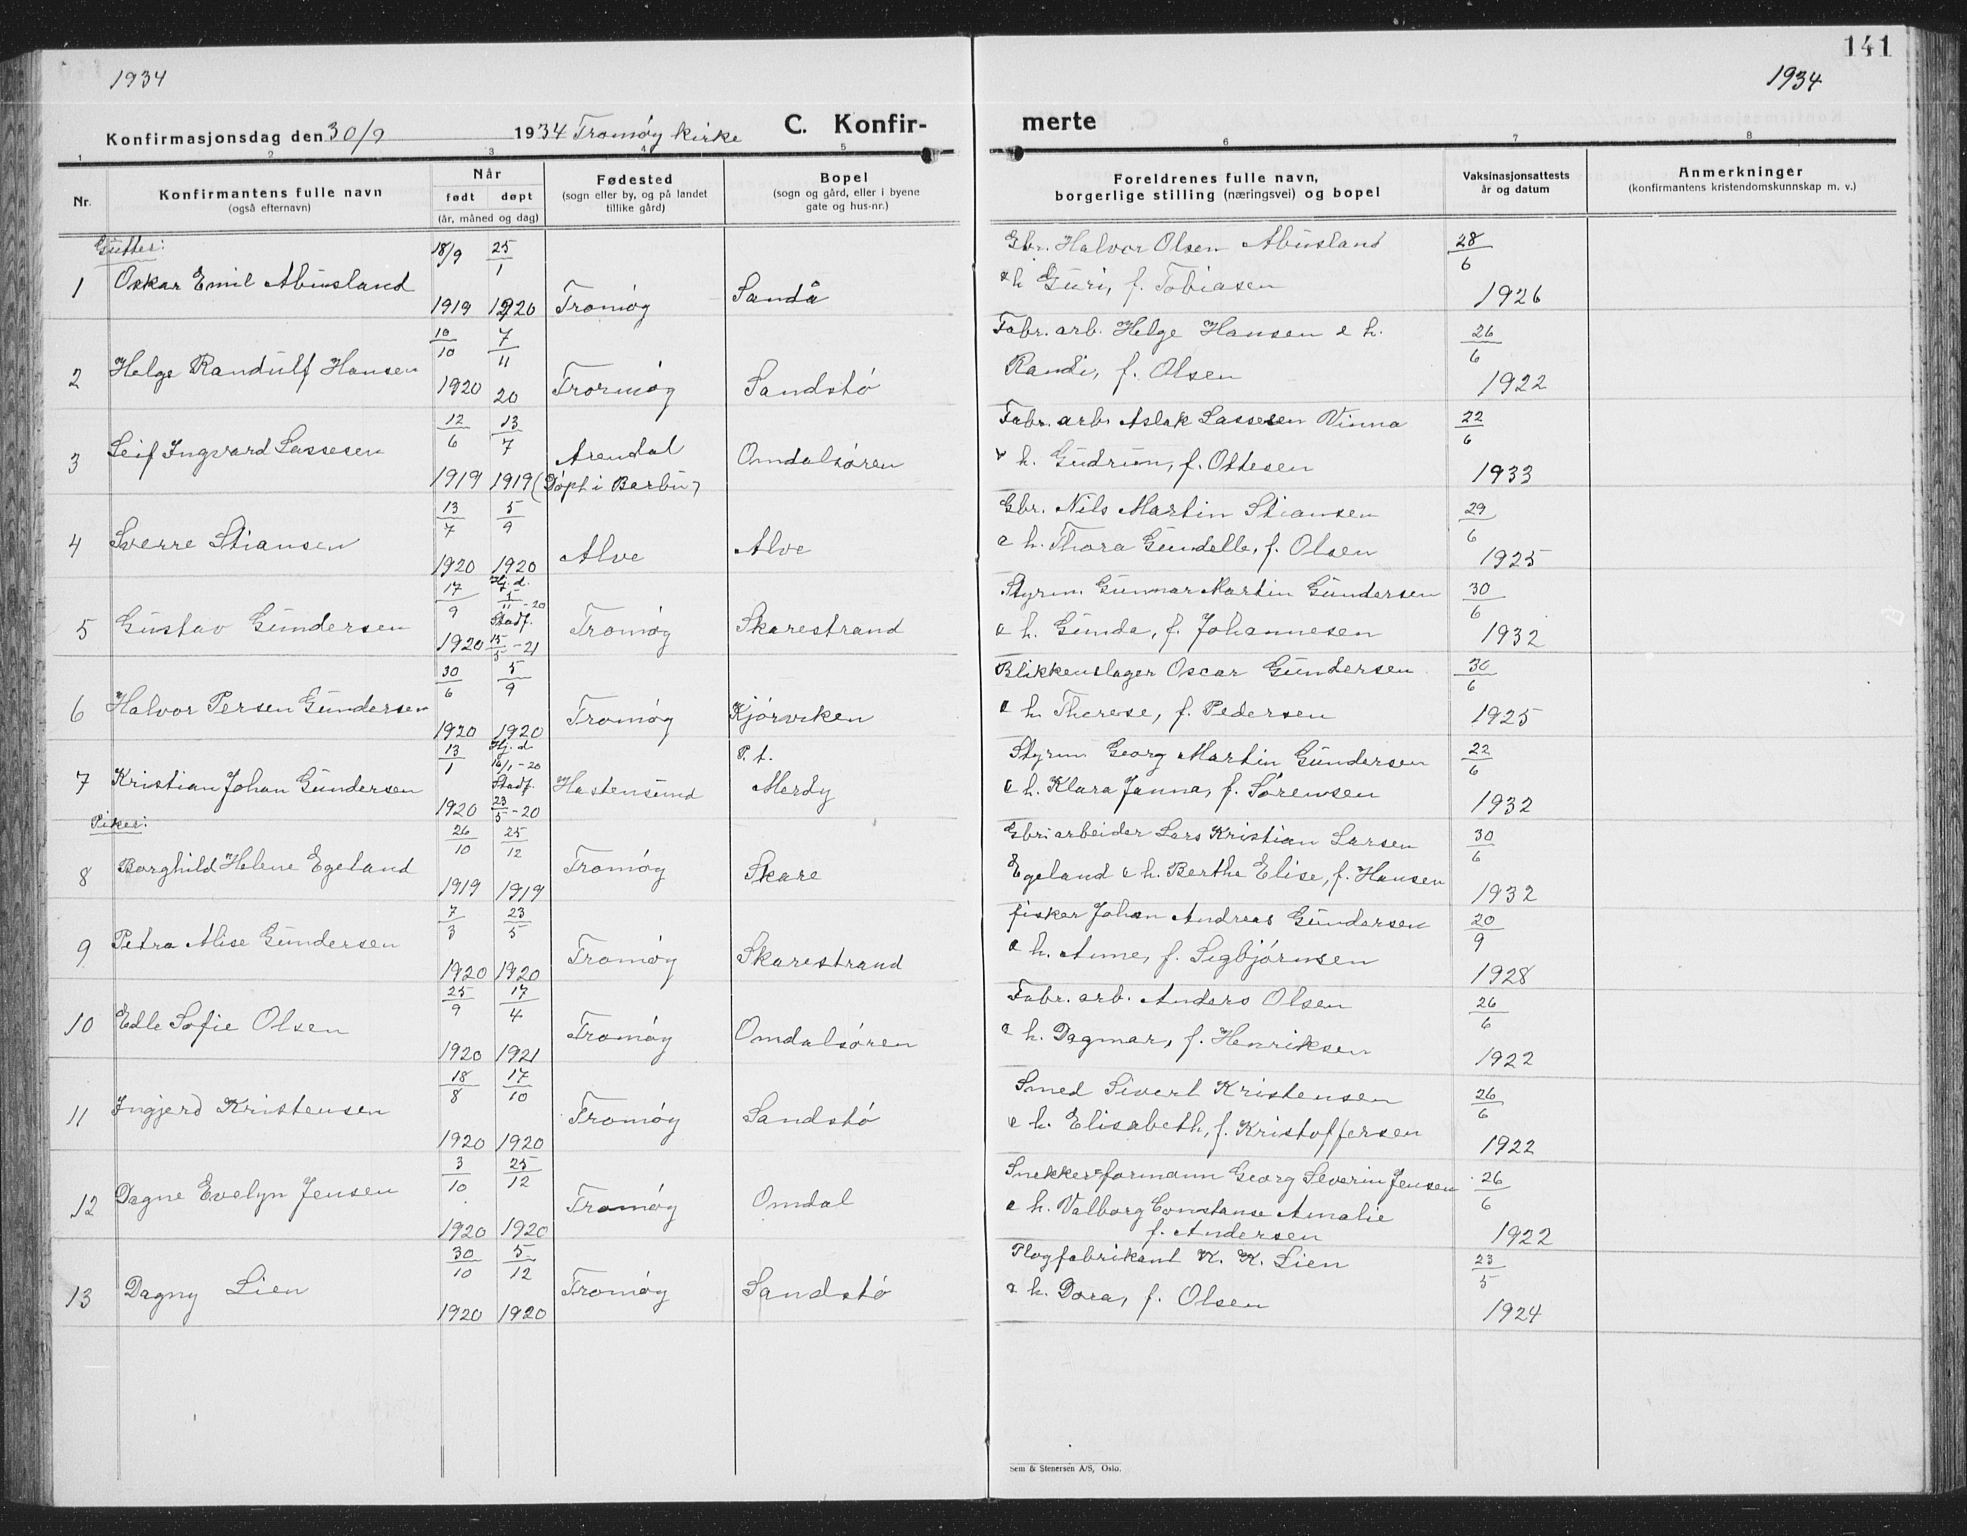 1934
Konfirmasjonsdag den 30/9 1934 Tromøy kirke C. Konfir-
1 2 3 4 5
Nr. Konfirmantens fulle navn (også efternavn) Når født døpt (år, måned og dag) Fødested (sogn eller by, og på landet tillike gård) Bopel (sogn og gård, eller i byene gate og hus-nr.)
Gutter:
1 Oskar Emil Abusland 18/9 1919 25/1 1920 Tromøy Sandå
2 Helge Randulf Hansen 10/10 1920 7/11 20 Tromøy Sandstø
3 Leif Ingvard Lassesen 12/6 1919 13/7 1919 Arendal (Døpt i Barbu) Omdalsøren
4 Sverre Stiansen 13/7 1920 5/9 1920 Alve Alve
5 Gustav Gundersen 17/9 1920 Hj. d. /11-20 Stadf. 15/5-21 Tromøy Skarestrand
6 Halvor Persen Gundersen 30/6 1920 5/9 1920 Tromøy Kjørviken
7 Kristian Johan Gundersen 13/1 1920 Hj. d. 16/1-20 Stadf. 23/5-20 Hastensund P. t. Merdy
Piker:
8 Borghild Helene Egeland 26/10 1919 25/12 1919 Tromøy Skare
9 Petra Alise Gundersen 7/3 1920 23/5 1920 Tromøy Skarestrand
10 Edle Sofie Olsen 25/9 1920 17/4 1921 Tromøy Omdalsøren
11 Ingjerd Kristensen 18/8 1920 17/10 1920 Tromøy Sandstø
12 Dagne Evelyn Jensen 3/10 1920 25/12 1920 Tromøy Omdal
13 Dagny Lien 30/10 1920 5/12 1920 Tromøy Sandstø
141
1934
merte
6 7 8
Foreldrenes fulle navn, borgerlige stilling (næringsvei) og bopel Vaksinasjonsattests år og datum Anmerkninger (konfirmantens kristendomskunnskap m. v.)
Gbr. Halvor Olsen Abusland 28/6
& h Guri, f. Tobiasen 1926
Fabr. arb. Helge Hansen & h. 26/6
Randi, f. Olsen 1922
Fabr. arb. Aslak Lassesen Vinna 22/6
& h. Gudrun, f. Ottesen 1933
Gbr. Nils Martin Stiansen 29/6
& h. Thora Gundelle, f. Olsen 1925
Styrm. Gunnar Martin Gundersen 30/6
& h. Gunda, f. Johannesen 1932
Blikkenslager Oscar Gundersen 30/6
& h. Therese, f. Pedersen 1925
Styrm Georg Martin Gundersen 22/6
& h. Klara Janna, f. Sørensen 1932
Gbr.arbeider Lars Kristian Larsen 30/6
Egeland & h. Berthe Elise, f. Hansen 1932
fisker Johan Andreas Gundersen 20/9
& h. Anne, f. Sigbjørnsen 1928
Fabr. arb. Anders Olsen 26/6
& h. Dagmar, f. Henriksen 1922
Smed Sivert Kristensen 26/6
& h. Elisabeth, f. Kristoffersen 1922
Snekker-formann Georg Severin Jensen 26/6
& h. Valborg Constanse Amalie
f. Andersen 1922
Plogfabrikant K. K. Lien 23/5
& h. Dora, f. Olsen 1924
Sem & Stenersen A/S, Oslo.